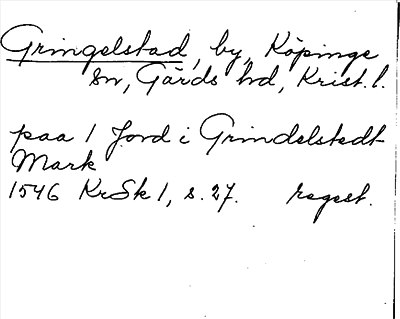 Gringelstad, by, Köpinge
sn, Gärds hd, Krist. l.
paa 1 Jord i Grindelstedt
Mark
1546 KrSk 1, s. 27. regest.